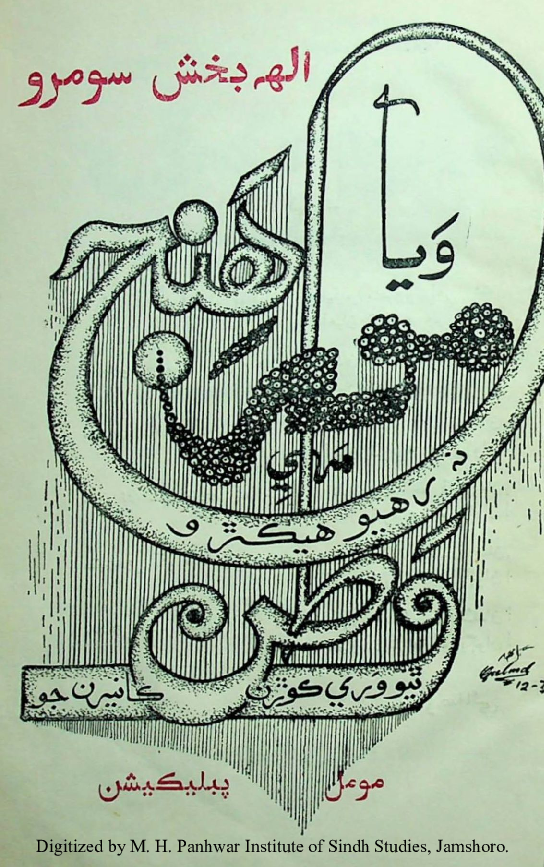 الهہ بخش سومرو
ويا
هنج
مور
مَري
نہ رهيو هيڪڙو
وطن
ٿيو وري ڪوڙن ڪانيرن جو
مومل پبليڪيشن
Digitized by M. H. Panhwar Institute of Sindh Studies, Jamshoro.